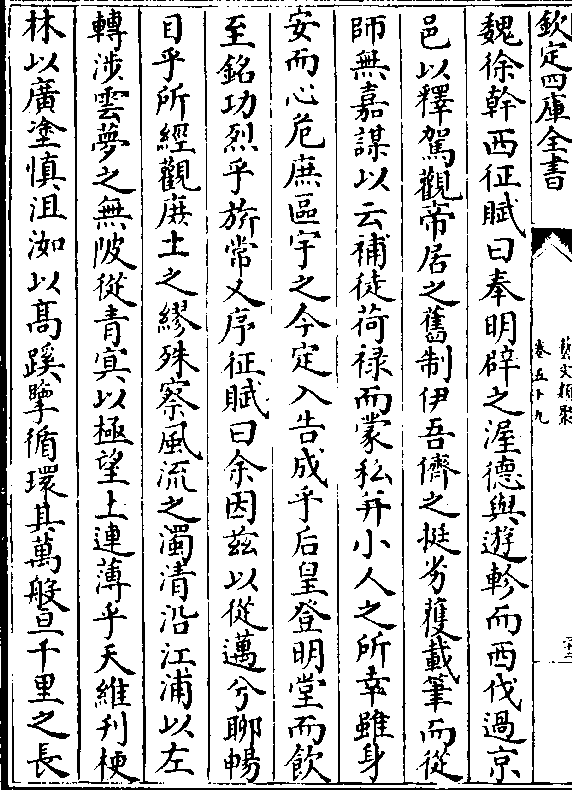 欽定四庫全書
藝文類聚
卷五十九
魏徐幹西征賦曰奉明辟之渥德與遊軫而西伐過京
邑以釋駕觀帝居之舊制伊吾儕之挺劣獲載筆而從
師無嘉謀以云補徒荷祿而蒙私非小人之所幸雖身
安而心危庶區宇之今定入告成乎后皇登明堂而飲
至銘功烈乎旂常又序征賦曰余因茲以從邁兮聊暢
目乎所經觀庶土之繆殊察風流之濁清沿江浦以左
轉涉雲夢之無陂從青冥以極望上連薄乎天維刋梗
林以廣塗慎沮洳以高蹊擥循環其萬艘亘千里之長